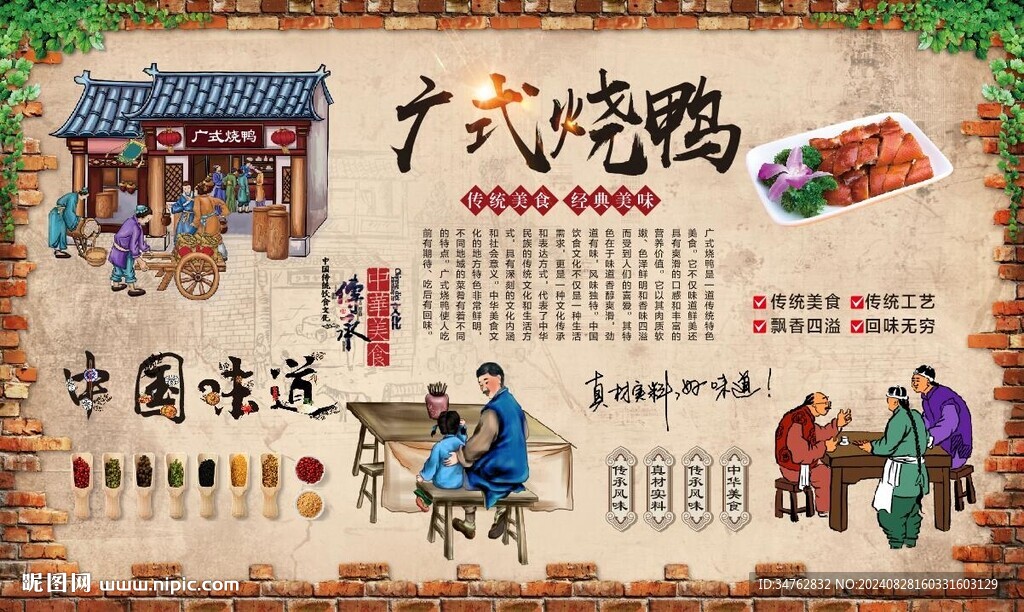 广式烧鸭
广式烧鸭
传统美食 经典美味
广式烧鸭是一道传统特色
美食，它不仅味道鲜美还
具有爽滑的口感和丰富的
营养价值。它以其肉质软
嫩、色泽鲜明和香味四溢
而受到人们的喜爱。其特
色在于味道香醇爽滑，劲
道有味，风味独特。中国
饮食文化不仅是一种生活
需求，更是一种文化传承
和表达方式，代表了中华
民族的传统文化和生活方
式，具有深刻的文化内涵
和社会意义。中华美食文
化的地方特色非常鲜明，
不同地域的菜肴有着不同
的特点。广式烧鸭使人吃
前有期待、吃后有回味。
中国传统饮食文化
传承
中华美食
文化
传统美食
传统工艺
飘香四溢
回味无穷
中国味道
真材实料,好味道!
传承风味
真材实料
传承风味
中华美食
昵图网 www.nipic.com
ID:34762832 NO:20240828160331603129